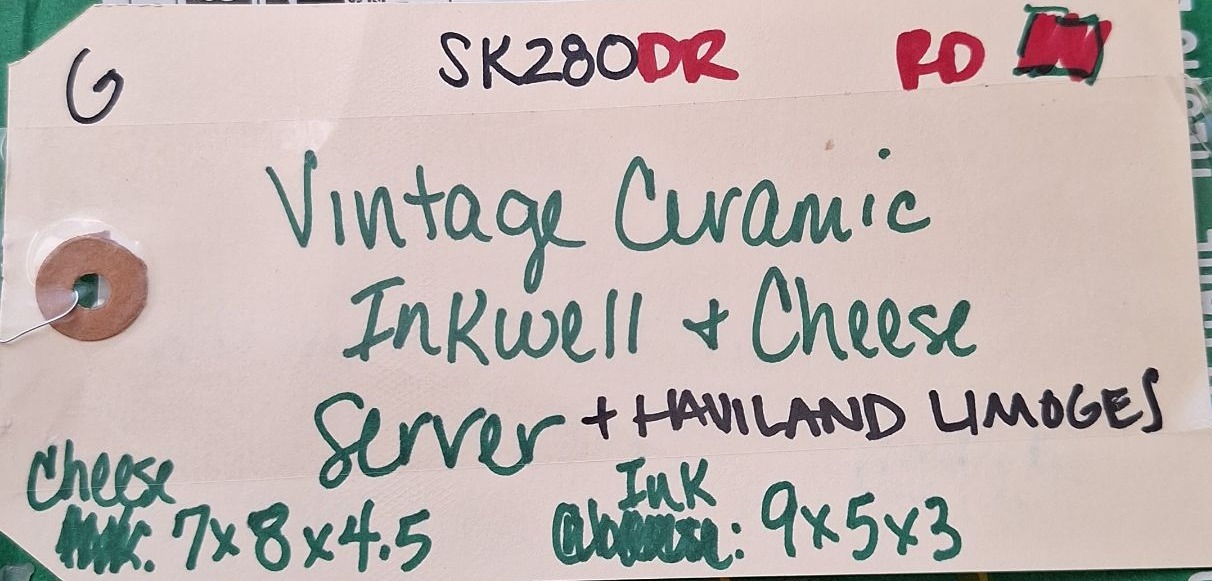 G SK280DR RD
Vintage Ceramic
Inkwell + Cheese
Server + HAVILAND LIMOGES
Cheese Ink
7x8x4.5 : 9x5x3